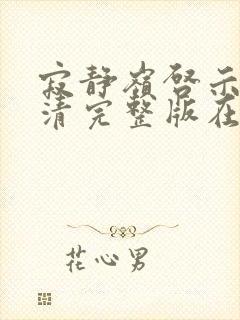 寂静岭启示
清完整版在
花心男